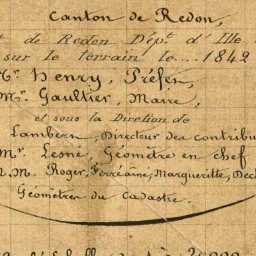 Canton de Redon,
de Redon Dépt. d'Ille
sur le terrain le .... 1842
Mr. Henry, Préfet,
Mr. Gaultier, Maire,
et sous la Direction de
Lambern, Directeur des contribu
Mr. Lesné, Géomètre en chef
M.M. Roger, Ferréaine, Margueritte, Bec
Géomètres du Cadastre.